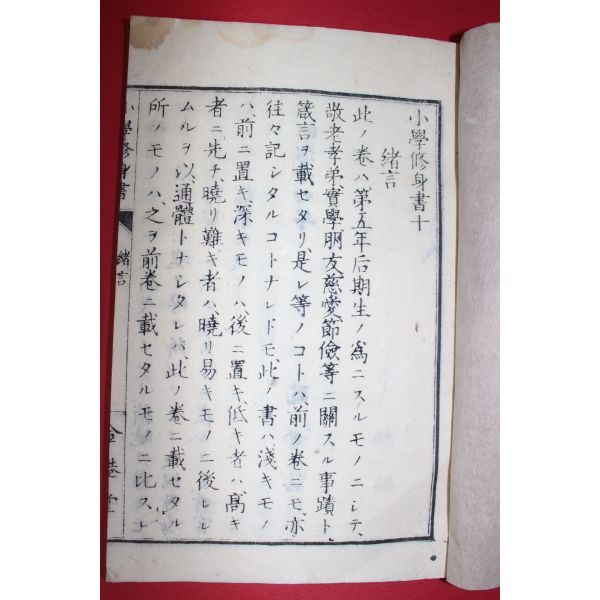 小學修身書十
緒言
此ノ卷ハ第五年后期生ノ爲ニスルモノニシテ、
敬老孝弟實學朋友慈愛節儉等ニ關スル事蹟ト、
箴言ヲ載セタリ、是レ等ノコトハ前ノ卷ニモ、亦
往々記シタルコトナレドモ、此ノ書ハ淺キモノ
ハ、前ニ置キ、深キモノハ、後ニ置キ、低キ者ハ、高キ
者ニ先チ、曉リ難キ者ハ、曉リ易キモノニ後レシ
ムルヲ以、通體トナシタレバ、此ノ卷ニ載セタル
所ノモノハ、之ヲ前卷ニ載セタルモノニ比スレ
小學修身書 緒言 金港堂